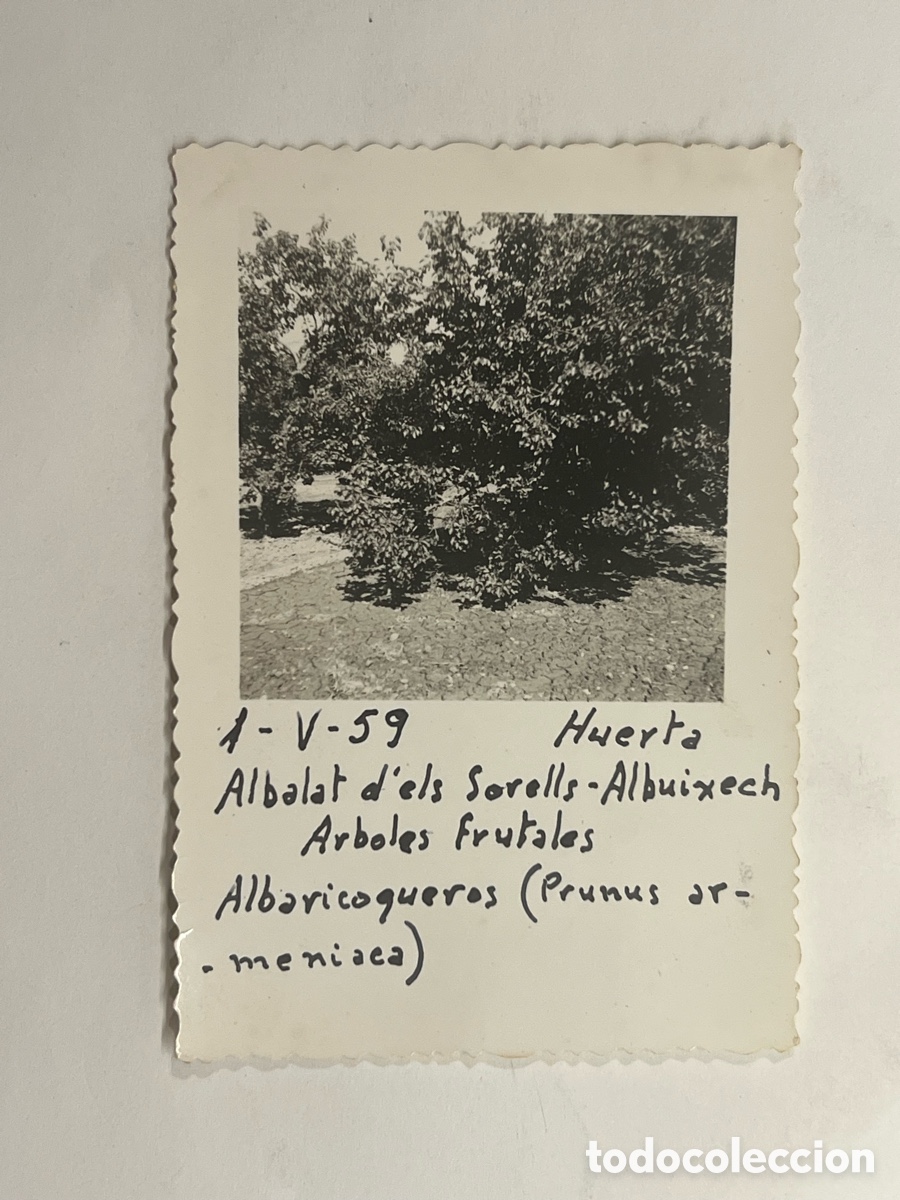 1-V-59 Huerta
Albalat d'els Sorells-Albuixech
Arboles frutales
Albaricoqueros (Prunus ar-
-meniaca)
todocoleccion